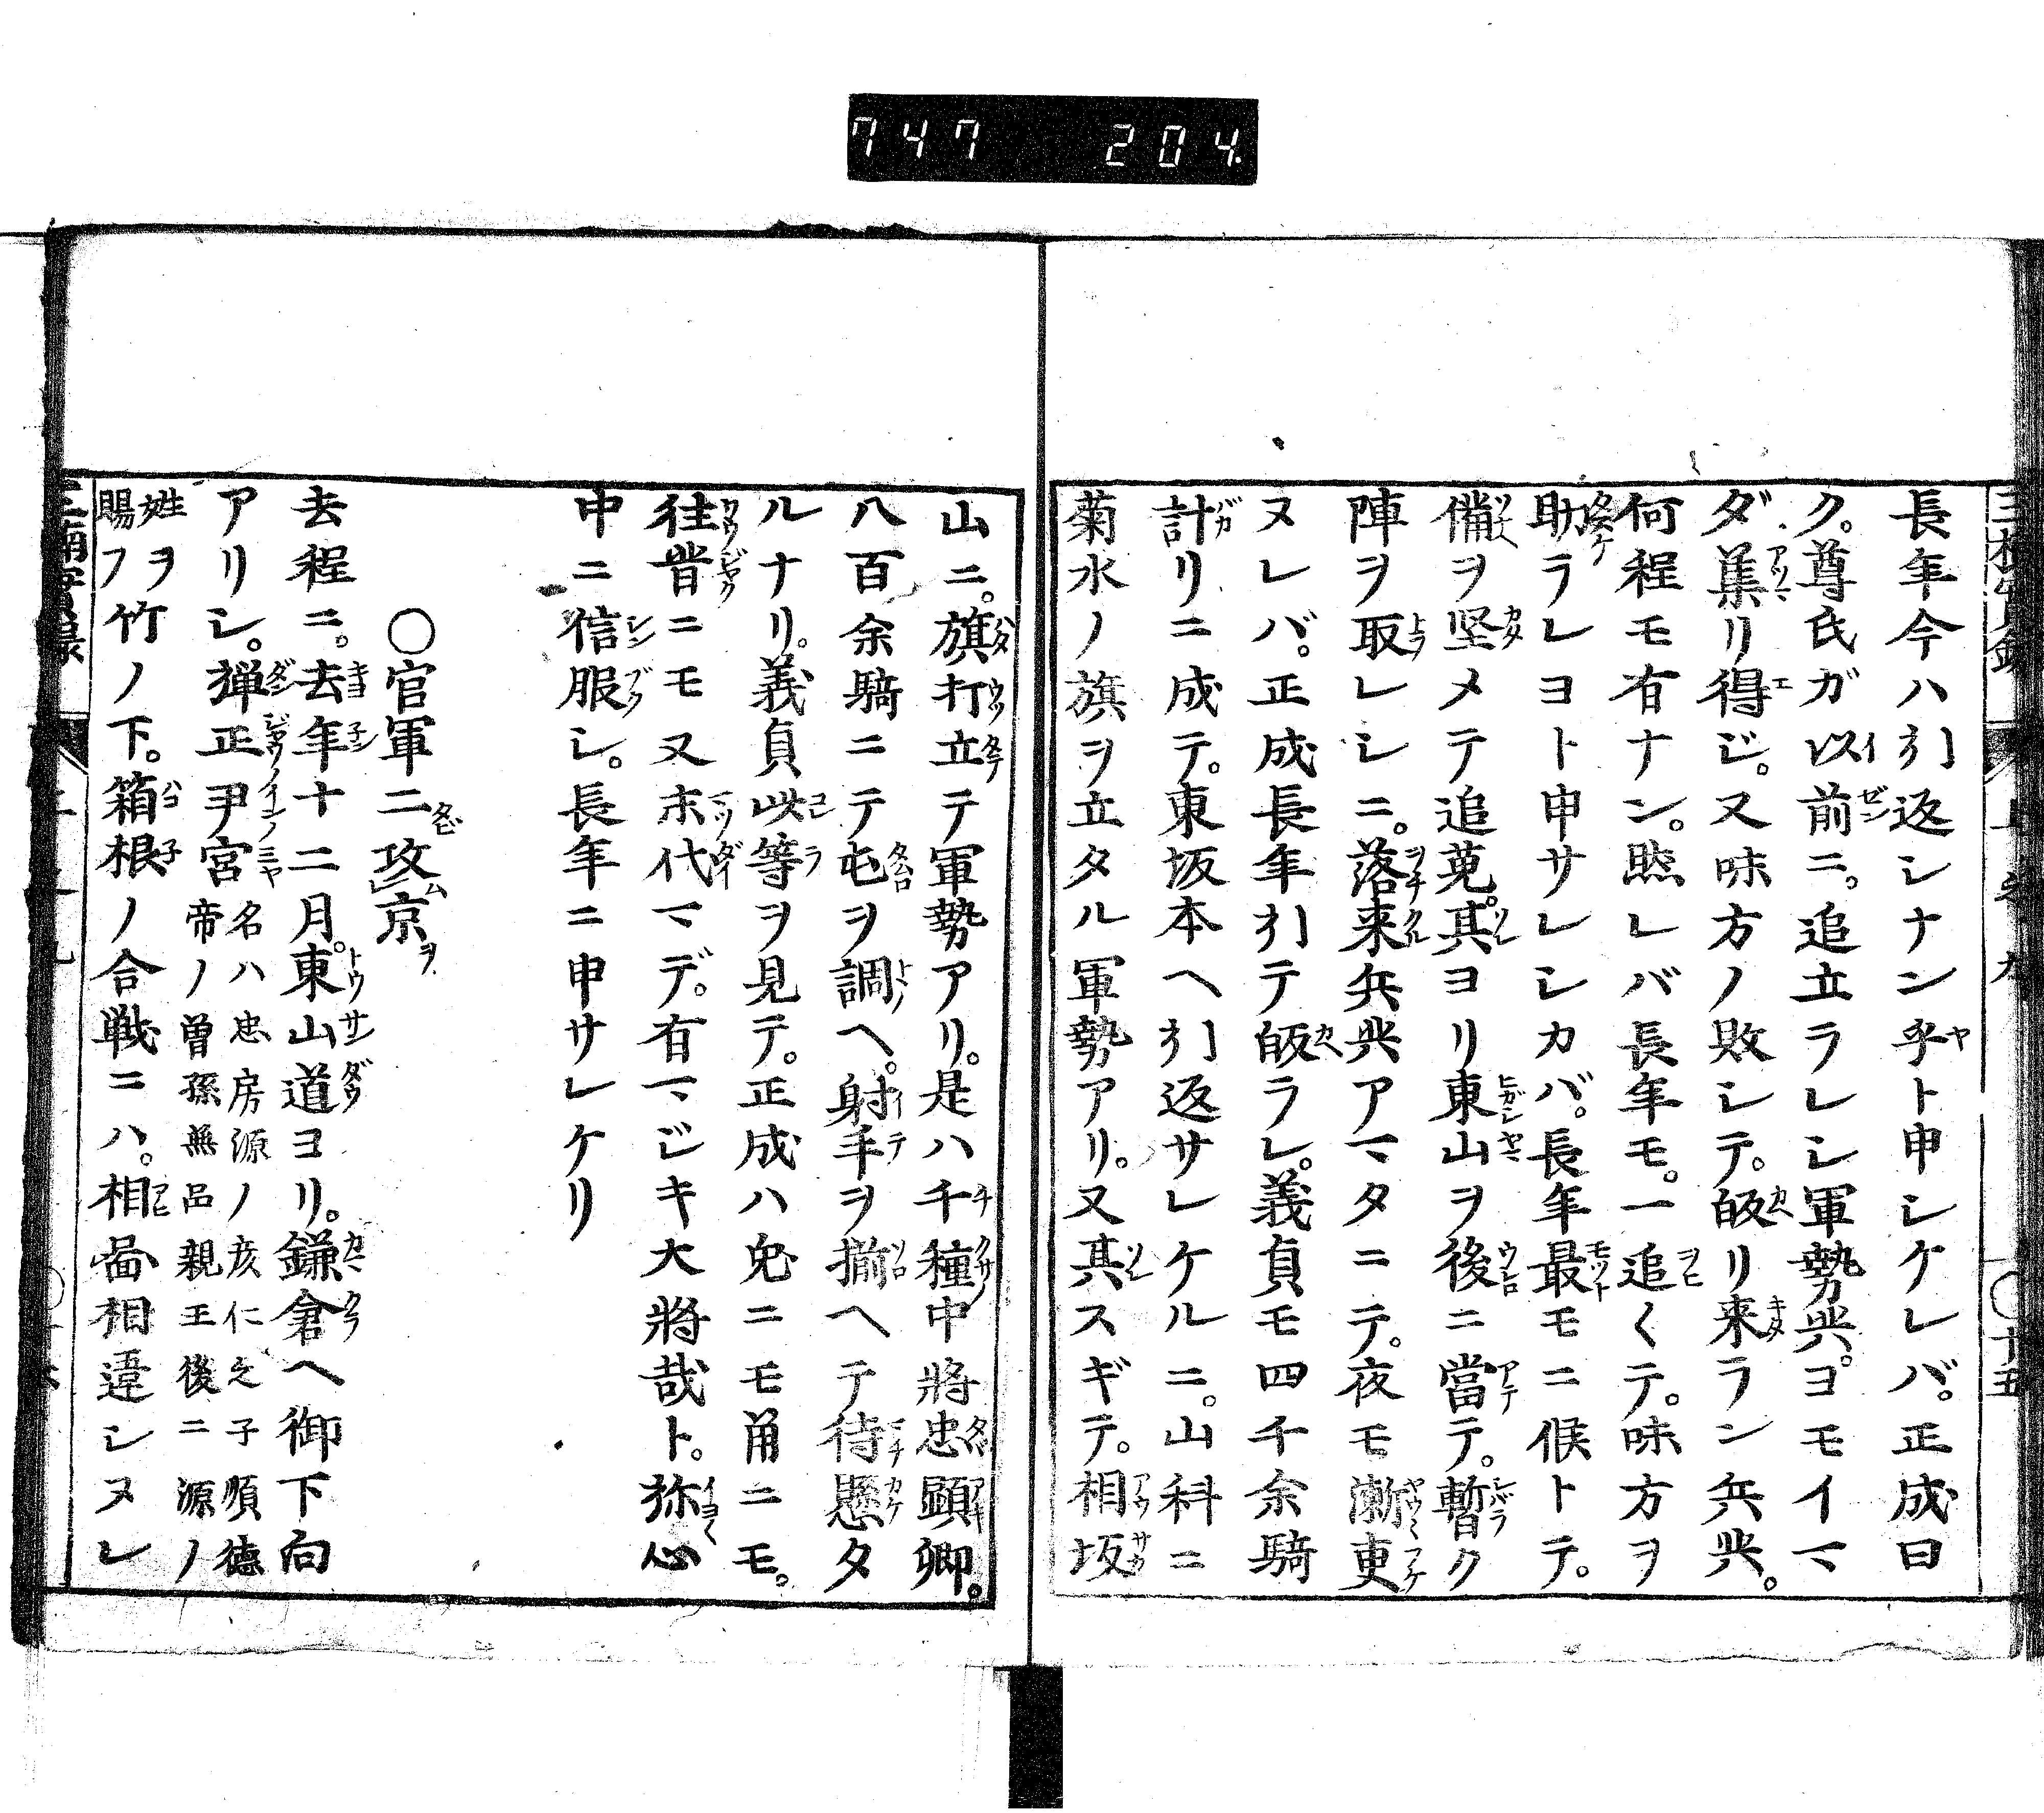 747 204
長年今ハ引返シナン乎ト申シケレバ。正成曰
ク。尊氏ガ以前ニ。追立ラレシ軍勢共。ヨモイマ
ダ集リ得ジ。又味方ノ敗シテ。皈リ来ラン兵共。
何程モ有ナン。然レバ長年モ。一追〱テ。味方ヲ
助ラレヨト申サレシカバ。長年最モニ候トテ。
備ヲ堅メテ追蒐。其ヨリ東山ヲ後ニ當テ。暫ク
陣ヲ取レシニ。落来兵共アマタニテ。夜モ漸更
ヌレバ。正成長年引テ皈ラレ。義貞モ四千余騎
計リニ成テ。東坂本ヘ引返サレケルニ。山科ニ
菊水ノ旗ヲ立タル軍勢アリ。又其スギテ。相坂
山ニ。旗打立テ軍勢アリ。是ハ千種中將忠顕卿。
八百余騎ニテ屯ヲ調ヘ。射手ヲ揃ヘテ待懸タ
ルナリ。義貞此等ヲ見テ。正成ハ兔ニモ角ニモ。
往昔ニモ又末代マデ。有マジキ大將哉ト。弥心
中ニ信服シ。長年ニ申サレケリ
〇官軍二攻京
去程ニ。去年十二月。東山道ヨリ。鎌倉ヘ御下向
アリシ。弾正尹宮名ハ忠房源ノ彦仁之子順德
帝ノ曽孫無品親王後ニ源ノ
姓ヲ
賜フ竹ノ下。箱根ノ合戦ニハ。相啚相違シヌレ